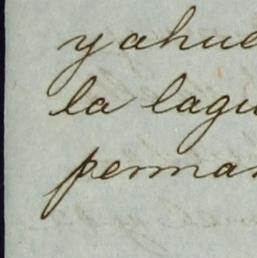 yahue
la lagu
perman